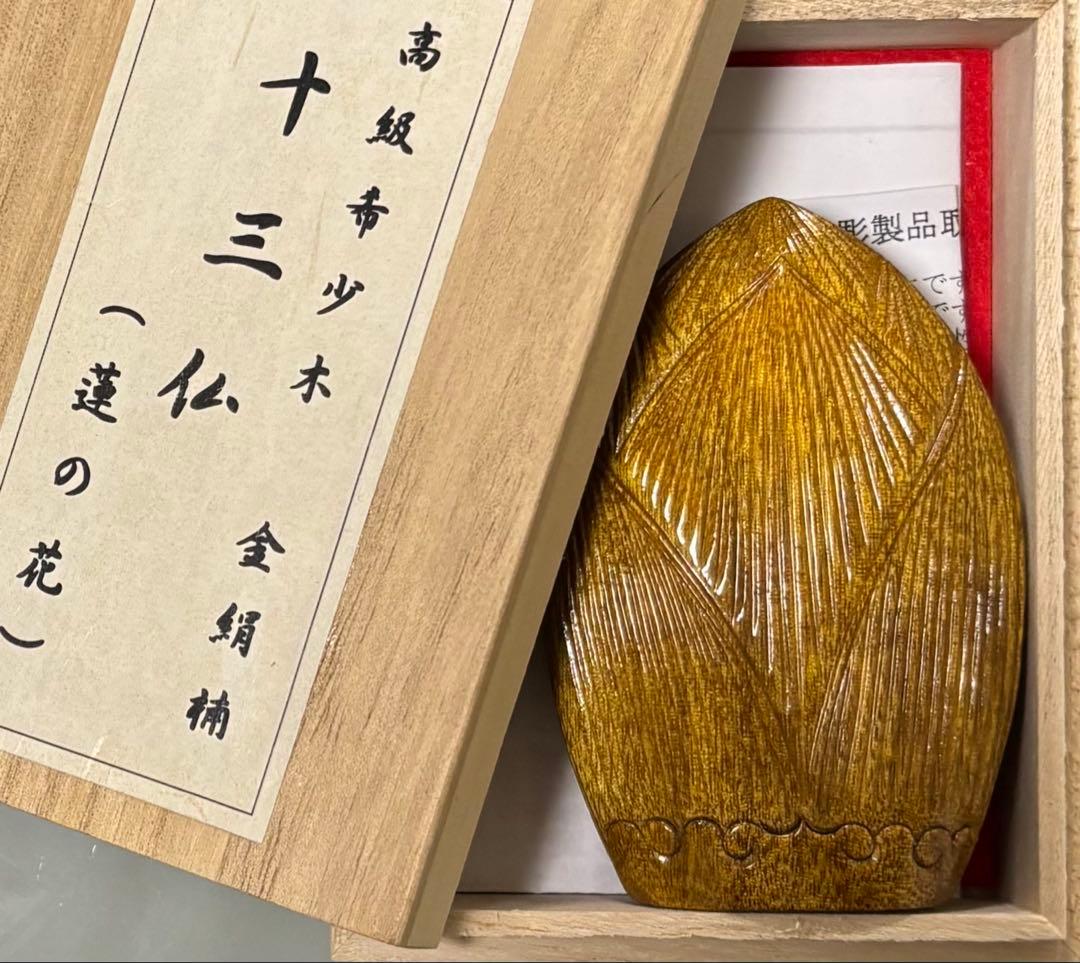 高級希少木　金絹楠
十三仏
（蓮の花）
彫製品取
です
です